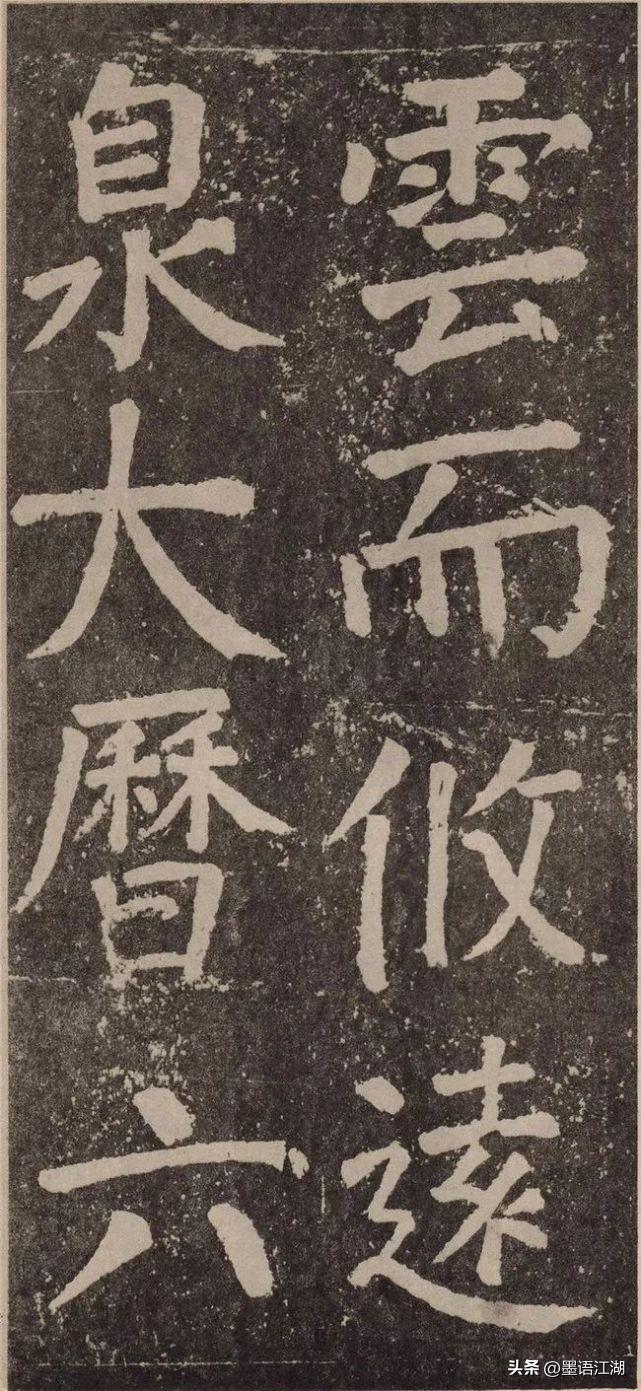 雲而攸遠
泉大曆六
头条 @墨语江湖